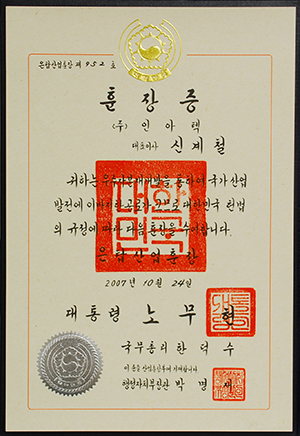 은탑산업훈장 제 952 호
훈장증
(주) 인아텍
대표이사 신계철
귀하는 우수자본재개발을 통하여 국가 산업
발전에 이바지한 공로가 크므로 대한민국 헌법
의 규정에 따라 다음 훈장을 수여합니다.
은탑산업훈장
2007년 10월 24일
대통령 노무현
국무총리 한덕수
이 증을 산업훈장부에 기재합니다
행정자치부장관 박명재